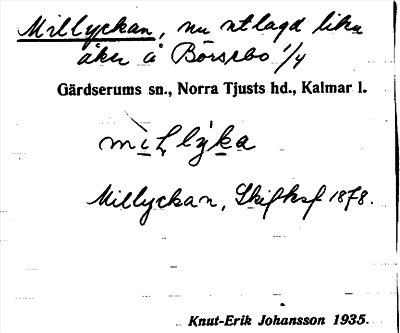 Millyckan, nu utlagd liten
åker å Börsebo 1/4
Gärdserums sn., Norra Tjusts hd., Kalmar l.
Millyckan, Skifksf 1878.
Knut-Erik Johansson 1935.